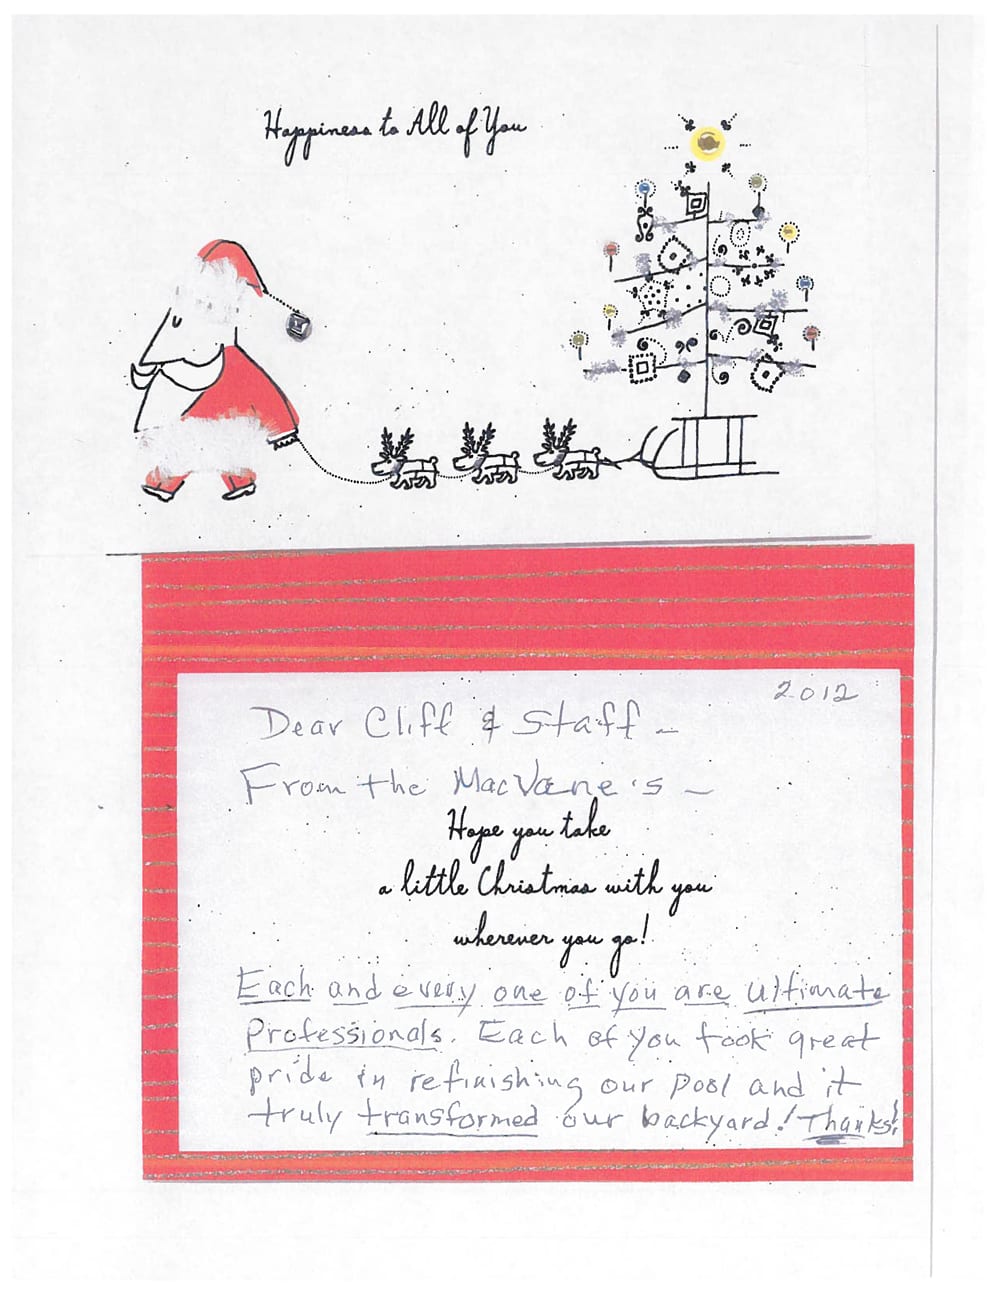 Happiness to All of You
2012
Dear Cliff & Staff –
From the MacVane's –
Hope you take
a little Christmas with you
wherever you go!
Each and every one of you are ultimate
Professionals. Each of you took great
pride in refinishing our pool and it
truly transformed our backyard! Thanks!